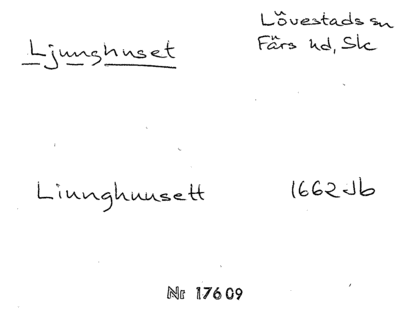 Ljunghuset
Lövestads sn
Färs hd, Sk
Liunghuusett 1662 Jb
Nr 17609